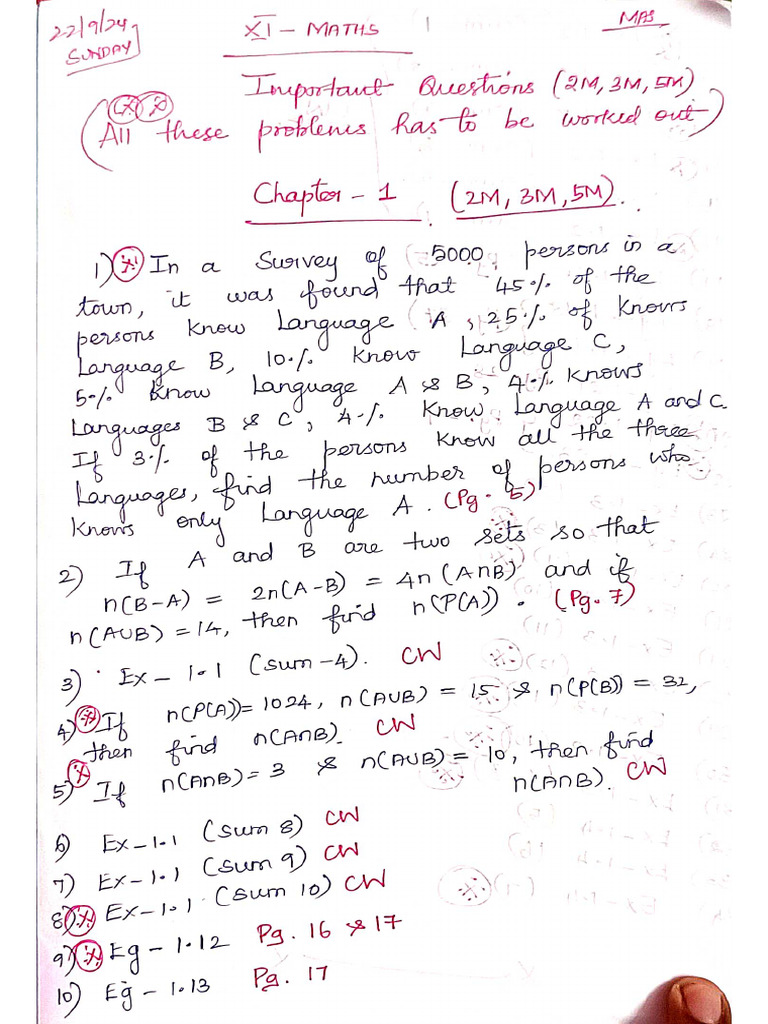 22/9/24
SUNDAY
XI - MATHS
MAS
Important Questions (2M, 3M, 5M)
(All these problems has to be worked out)
Chapter - 1 (2M, 3M, 5M).
1) In a Survey of 5000 persons in a
town, it was found that 45% of the
persons know Language A, 25% of knows
Language B, 10% know Language C,
5% know Language A & B, 4% knows
Languages B & C, 4% know Language A and C.
If 3% of the persons know all the three
Languages, find the number of persons who
knows only Language A. (Pg. 5)
2) If A and B are two sets so that
n(B-A) = 2n(A-B) = 4n(A∩B) and if
n(A∪B) = 14, then find n(P(A)). (Pg. 7)
3) Ex - 1.1 (sum - 4). CW
4) If n(P(A)) = 1024, n(A∪B) = 15 & n(P(B)) = 32,
then find n(A∩B). CW
5) If n(A∩B) = 3 & n(A∪B) = 10, then find
n(A∩B). CW
6) Ex - 1.1 (sum 8) CW
7) Ex - 1.1 (sum 9) CW
8) Ex - 1.1 (sum 10) CW
9) Eg - 1.12 Pg. 16 & 17
10) Eg - 1.13 Pg. 17